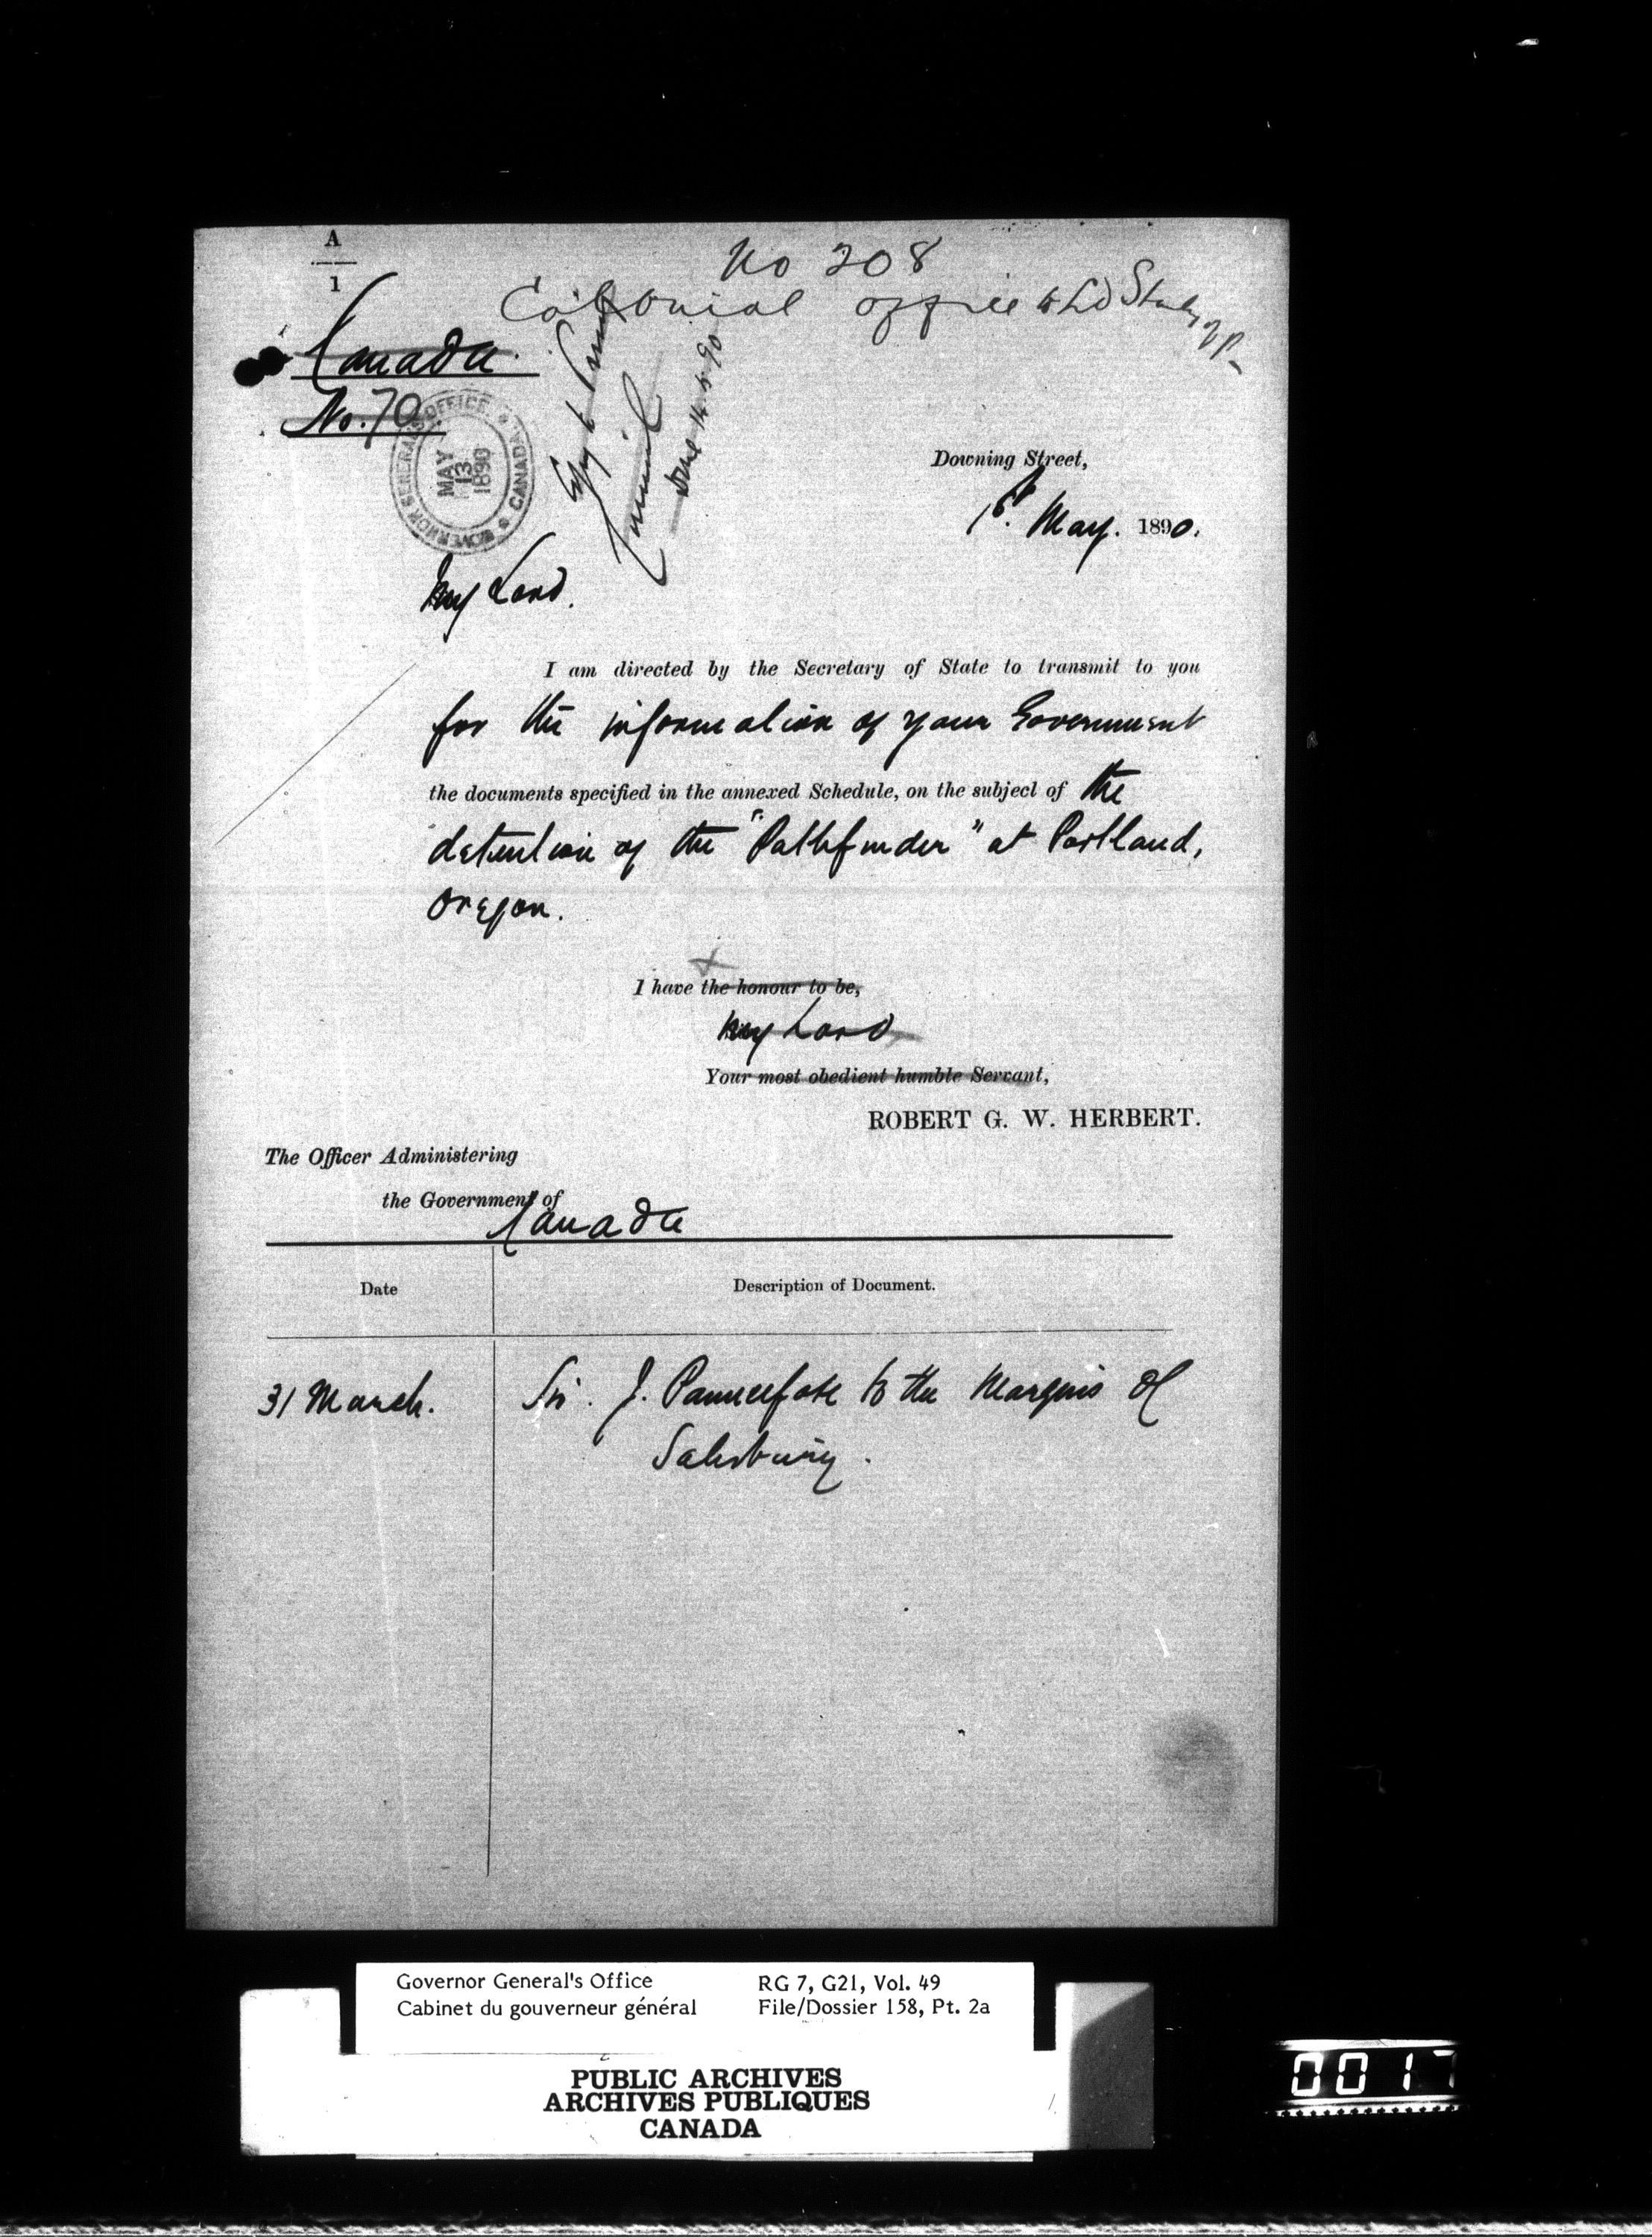 A
1
No 208
Colonial Office to Ld Stanley of P-
Canada.
No. 70.
GOVERNOR GENERAL'S OFFICE
CANADA
MAY
13
1890
Copy to
Council
Done 14.5.90
Downing Street,
1st. May. 1890.
My Lord.
I am directed by the Secretary of State to transmit to you
for the information of your Government
the documents specified in the annexed Schedule, on the subject of the
detention of the "Pathfinder" at Portland,
Oregon.
I have the honour to be,
My Lord
Your most obedient humble Servant,
ROBERT G. W. HERBERT.
The Officer Administering
the Government of
Canada
Date
Description of Document.
31 March.
Sir. J. Pauncefote to the Marquis of
Salisbury.
Governor General's Office
Cabinet du gouverneur général
RG 7, G21, Vol. 49
File/Dossier 158, Pt. 2a
PUBLIC ARCHIVES
ARCHIVES PUBLIQUES
CANADA
0017